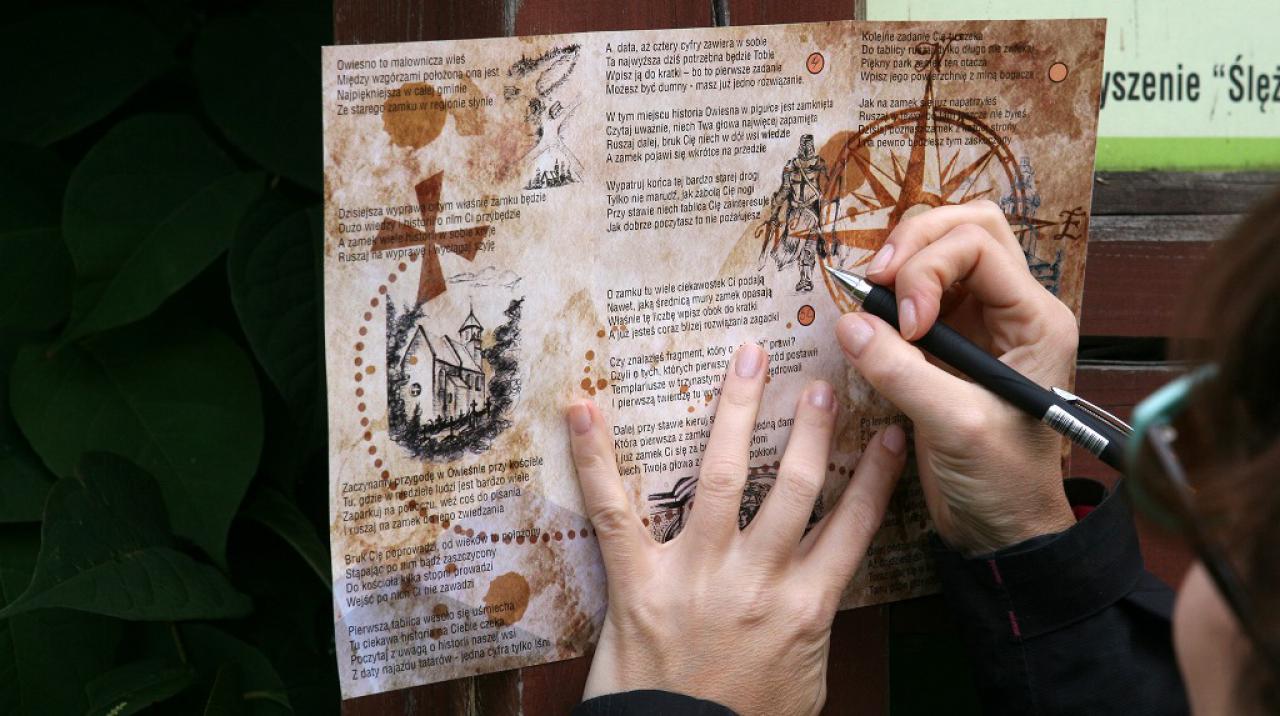 Owiesno to malownicza wieś
Między wzgórzami położona ona jest
Najpiękniejsza w całej gminie
Ze starego zamku w regionie słynie
Dzisiejsza wyprawa o tym właśnie zamku będzie
Dużo wiedzy i historii o nim Ci przybędzie
A zamek wiele historii w sobie kryje
Ruszaj na wyprawę i wyciągaj szyję
Zaczynamy przygodę w Owieśnie przy kościele
Tu, gdzie w niedziele ludzi jest bardzo wiele
Zaparkuj na poboczu, weź coś do pisania
I ruszaj na zamek do jego zwiedzania
Bruk Cię poprowadzi, od wieków tu położony
Stąpając po nim bądź zaszczycony
Do kościoła kilka stopni prowadzi
Wejść po nich Ci nie zawadzi
Pierwsza tablica wesoło się uśmiecha
Tu ciekawa historia na Ciebie czeka
Poczytaj z uwagą o historii naszej wsi
Z daty najazdu tatarów - jedna cyfra tylko lśni
A, data, aż cztery cyfry zawiera w sobie
Ta najwyższa dziś potrzebna będzie Tobie
Wpisz ją do kratki – bo to pierwsze zadanie
Możesz być dumny - masz już jedno rozwiązanie.
4
W tym miejscu historia Owiesna w pigułce jest zamknięta
Czytaj uważnie, niech Twa głowa najwięcej zapamięta
Ruszaj dalej, bruk Cię niech w dół wsi wiedzie
A zamek pojawi się wkrótce na przedzie
Wypatruj końca tej bardzo starej drogi
Tylko nie marudź, jak zabolą Cię nogi
Przy stawie niech tablica Cię zainteresuje
Jak dobrze poczytasz to nie pożałujesz
O zamku tu wiele ciekawostek Ci podają
Nawet, jaką średnicą mury zamek opasają
Właśnie tę liczbę wpisz obok do kratki
A już jesteś coraz bliżej rozwiązania zagadki
Czy znalazłeś fragment, który o prawi?
Czyli o tych, których pierwszy gród postawił
Templariusze w trzynastym wędrowali
I pierwszą twierdzę tu
Dalej przy stawie kieruj jedną
Która pierwsza z zamku
I już zamek Ci się za
Niech Twoja głowa pokłoni
Kolejne zadanie Cię
Do tablicy ruszaj tylko długo nie zwlekaj
Piękny park zamek ten otacza
Wpisz jego powierzchnię z miną bogacza
Jak na zamek się już napatrzyłeś
Ruszaj nie byłeś
Dzisiaj poznasz zamek z każdej strony
I na pewno będziesz tym zaskoczony
E
yszenie “Ślęż